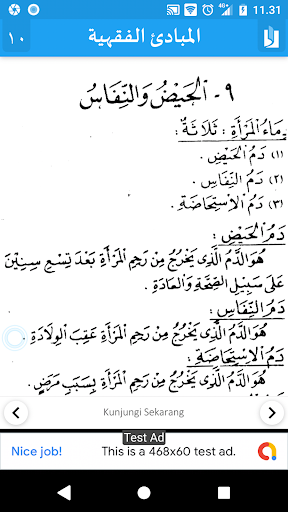 4G 11.31
١٠ المبادئ الفقهية
٩- اَلْحَيْضُ وَالنِّفَاسُ
دِمَاءُ الْمَرْأَةِ : ثَلَاثَةٌ :
(١) دَمُ الْحَيْضِ .
(٢) دَمُ النِّفَاسِ .
(٣) دَمُ الْاِسْتِحَاضَةِ .
دَمُ الْحَيْضِ :
هُوَ الدَّمُ الَّذِي يَخْرُجُ مِنْ رَحِمِ الْمَرْأَةِ بَعْدَ تِسْعِ سِنِيْنَ
عَلَى سَبِيْلِ الصِّحَّةِ وَالْعَادَةِ .
دَمُ النِّفَاسِ :
هُوَ الدَّمُ الَّذِي يَخْرُجُ مِنْ رَحِمِ الْمَرْأَةِ عَقِبَ الْوِلَادَةِ .
دَمُ الْاِسْتِحَاضَةِ :
هُوَ الدَّمُ الَّذِي يَخْرُجُ مِنْ رَحِمِ الْمَرْأَةِ بِسَبَبِ مَرَضٍ .
Kunjungi Sekarang
Test Ad
Nice job! This is a 468x60 test ad.